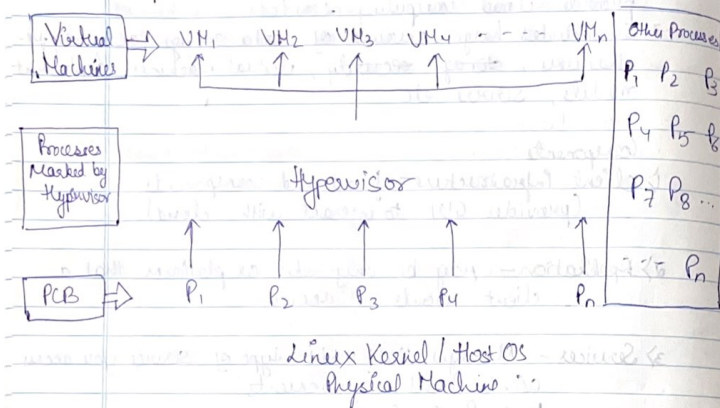 Virtual
Machines
VM1 VM2 VM3 VM4 - - - - VMn
Other Processes
P1 P2 P3
P4 P5 P6
P7 P8 ..
Pn
Processes
Marked by
Hypervisor
Hypervisor
PCB
P1 P2 P3 P4 Pn
Linux Kernel / Host OS
Physical Machine